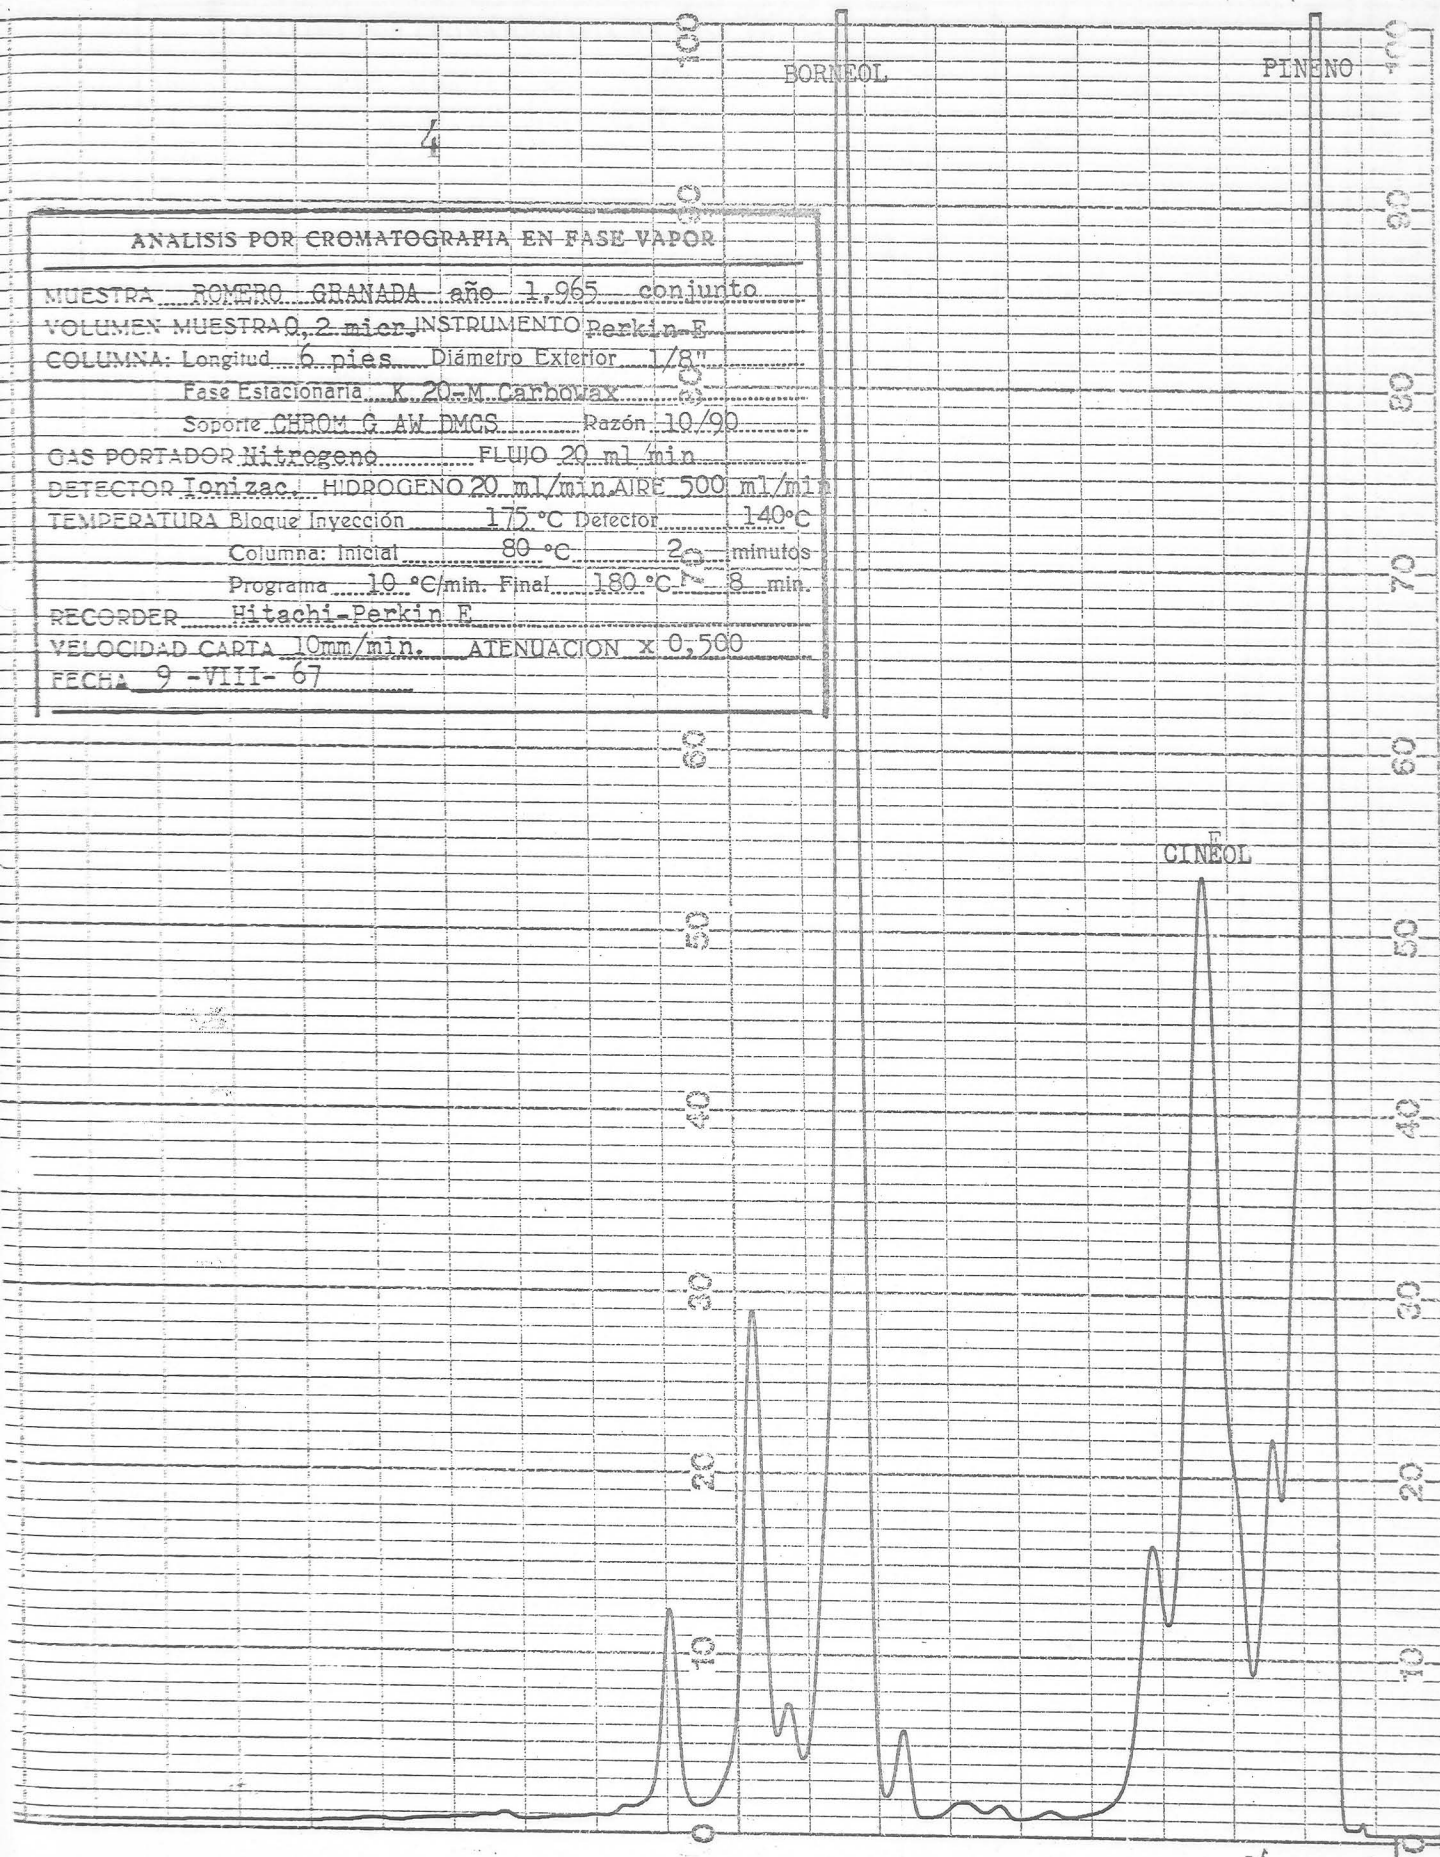 100 100
BORNEOL PINENO
4
90 90
ANALISIS POR CROMATOGRAFIA EN FASE VAPOR
MUESTRA ROMERO GRANADA año 1.965 conjunto
VOLUMEN MUESTRA 0,2 micr. INSTRUMENTO Perkin-E
COLUMNA: Longitud 6 pies Diámetro Exterior 1/8"
Fase Estacionaria K 20-M Carbowax
80 80
Soporte CHROM G AW DMCS Razón 10/90
GAS PORTADOR Nitrogeno FLUJO 20 ml/min
DETECTOR Ionizac. HIDROGENO 20 ml/min. AIRE 500 ml/min
TEMPERATURA Bloque Inyección 175 °C Detector 140°C
Columna: Inicial 80 °C 2 minutos
70 70
Programa 10 °C/min. Final 180 °C 8 min.
RECORDER Hitachi-Perkin E
VELOCIDAD CARTA 10mm/min. ATENUACION x 0,500
FECHA 9 -VIII- 67
60 60
E
CINEOL
50 50
40 40
30 30
20 20
10 10
0 0